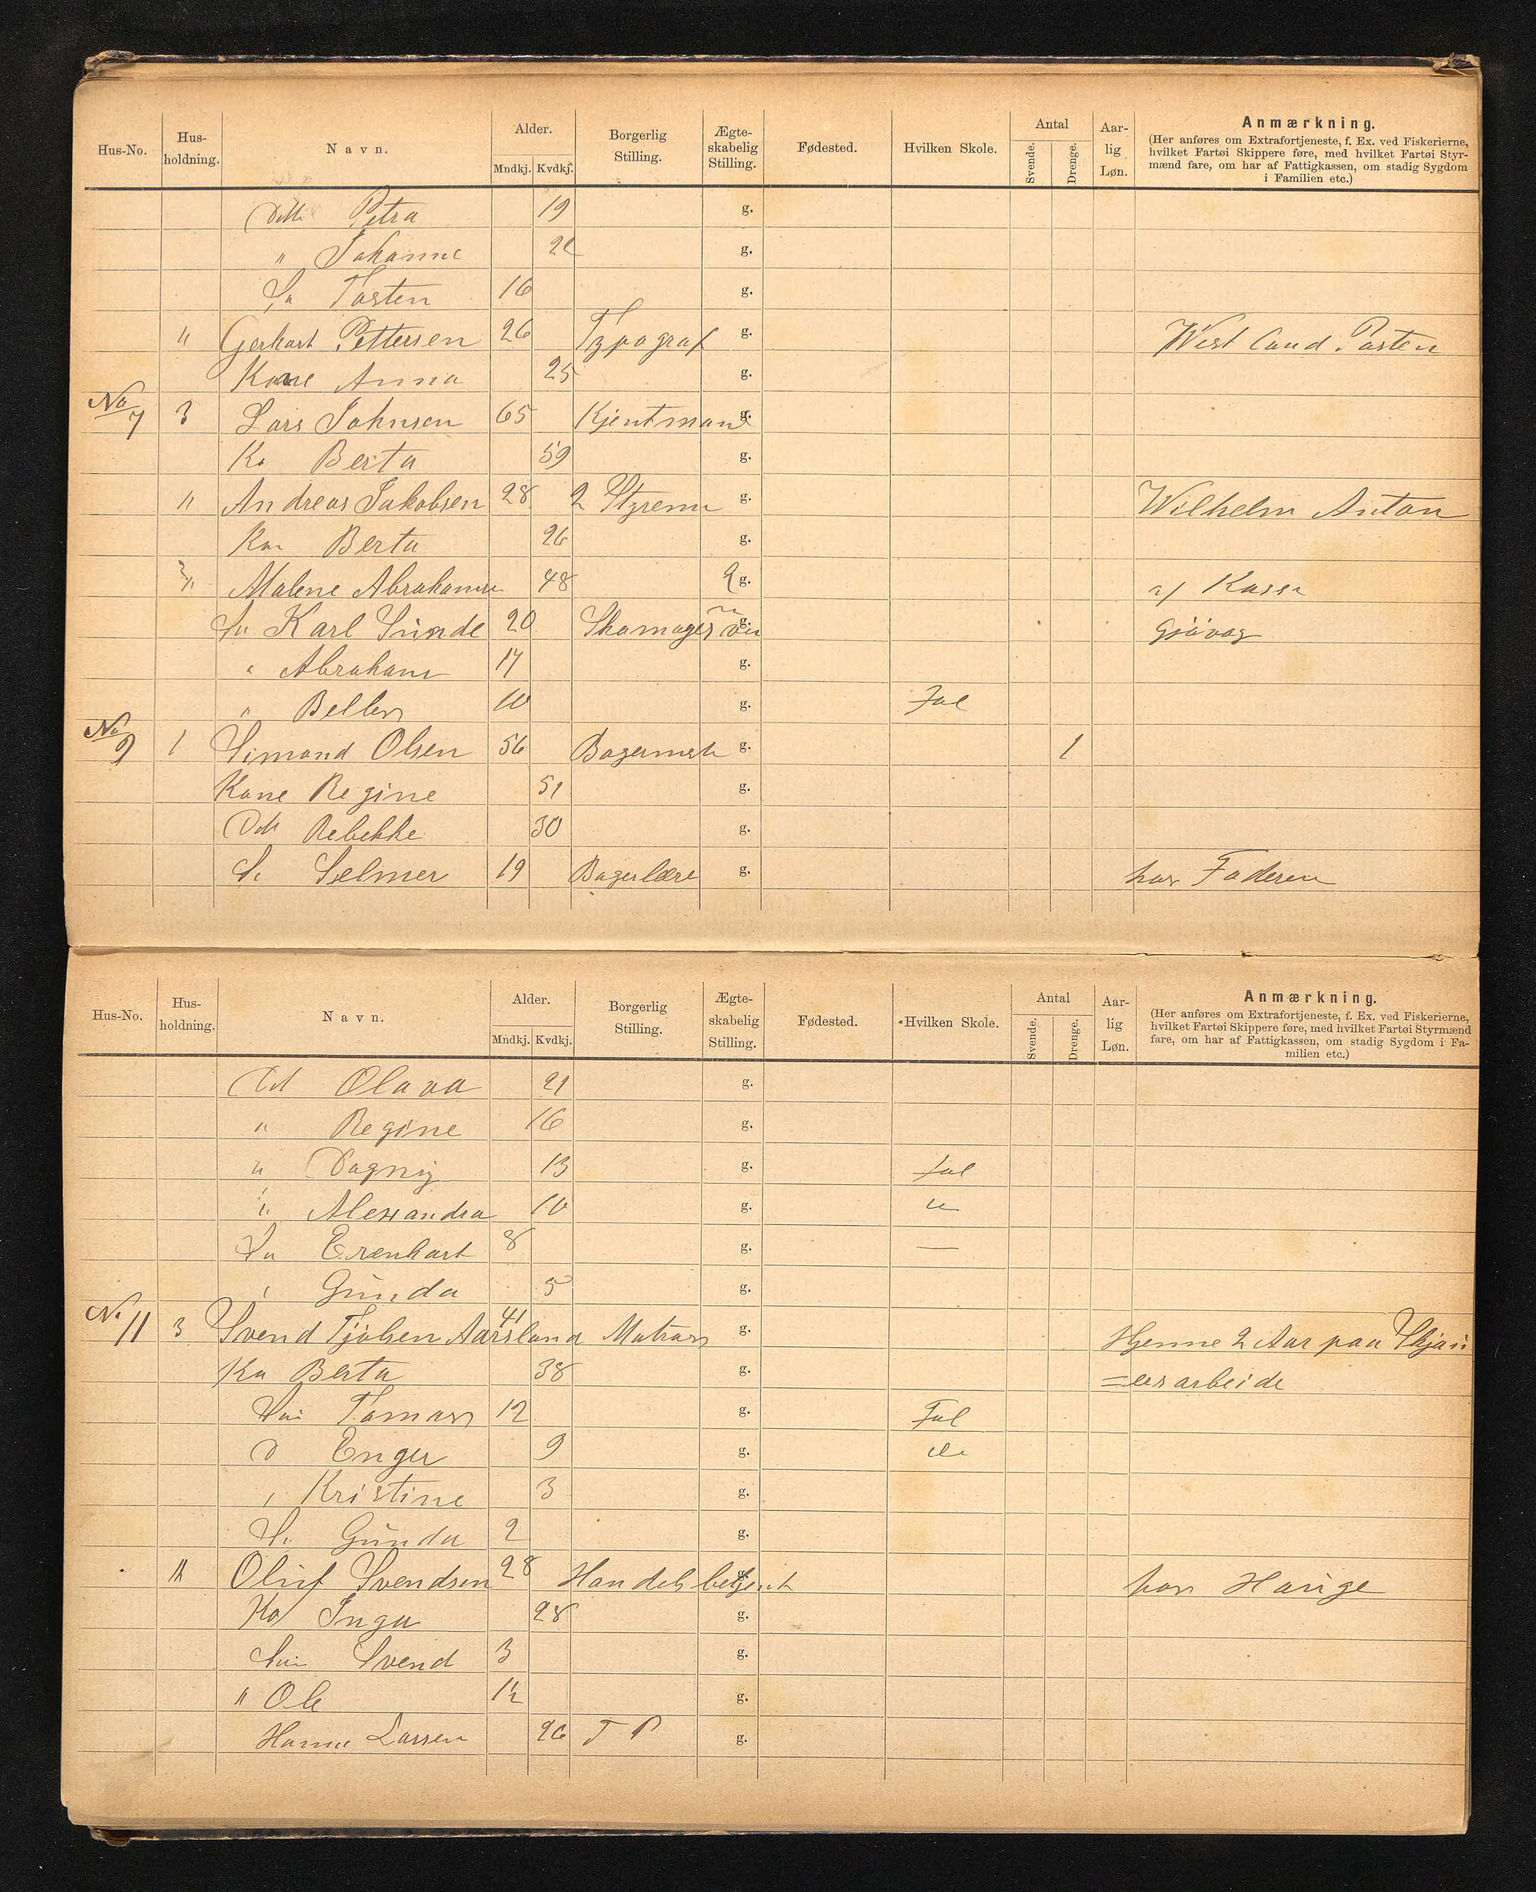 Hus-No. Hus-holdning. Navn. Alder. Mndkj. Kvdkj. Borgerlig Stilling. Ægte-skabelig Stilling. Fødested. Hvilken Skole. Antal Svende. Drenge. Aar-lig Løn. Anmærkning.
(Her anføres om Extrafortjeneste, f. Ex. ved Fiskerierne,
hvilket Fartøi Skippere føre, med hvilket Fartøi Styr-
mænd fare, om har af Fattigkassen, om stadig Sygdom
i Familien etc.)
Petra 19 g.
" Johanne g.
Torsten 16 g.
" Gerhart Pettersen 26 Typograf g. Westland Posten
Kone Anna 25 g.
No 7 3 Lars Johnsen 65 Kjentmand g.
Ko Berta 59 g.
" Andreas Jakobsen 28 2 Styrem g. Wilhelm Anton
Kon Berta 26 g.
Malene Abrahams 48 g. af Kassen
Karl Sunde 20 g.
" Abraham 17 g.
" 10 g. Fol
No 9 1 Simond Olsen 56 Bagermst g. 1
Kone Regine 51 g.
Dtt Rebekke 30 g.
S. Selmer 19 Bagerlære g. hos Faderen
Hus-No. Hus-holdning. Navn. Alder. Mndkj. Kvdkj. Borgerlig Stilling. Ægte-skabelig Stilling. Fødested. Hvilken Skole. Antal Svende. Drenge. Aar-lig Løn. Anmærkning.
(Her anføres om Extrafortjeneste, f. Ex. ved Fiskerierne,
hvilket Fartøi Skippere føre, med hvilket Fartøi Styrmænd
fare, om har af Fattigkassen, om stadig Sygdom i Fa-
milien etc.)
Dtt Olava 21 g.
" Regine 16 g.
" Dagny 13 g. Fol
" Alexandra 10 g. "
Erenhart 8 g. —
Gunda 5 g.
No. 11 3 Svend Tjølsen Aarsland 41 Matros g. Hjemme 2 Aar paa
Ko Berta 38 g. arbeide
Tomas 12 g. Fol
D Enger 9 g. "
" Kristine 3 g.
S. Gunda 2 g.
" Oluf Svendsen 28 Handelsbetjent g. hos Hauge
Ko Inga 28 g.
Svend 3 g.
" Ole 1½ g.
Hanne Larsen 26 T P g.